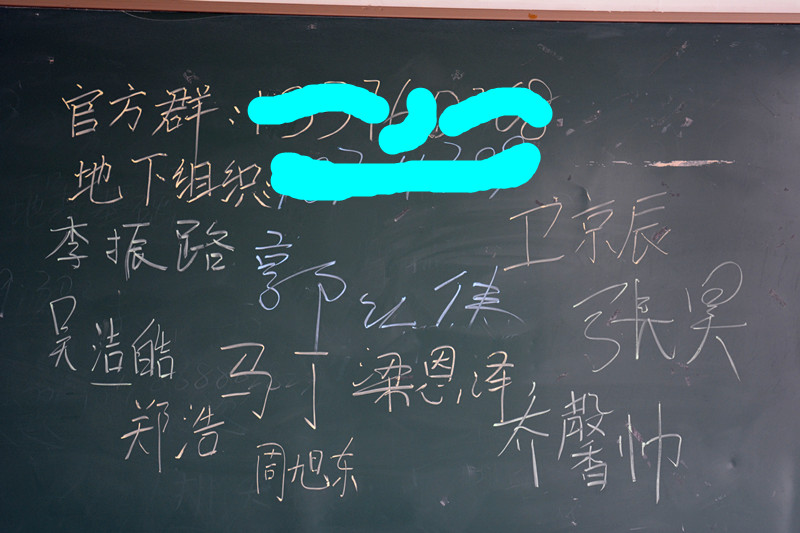 官方群:
地下组织:
李振路
卫京辰
郭
張昊
吴洁皓
马丁
梁恩泽
郑浩
周旭东
乔馨帅